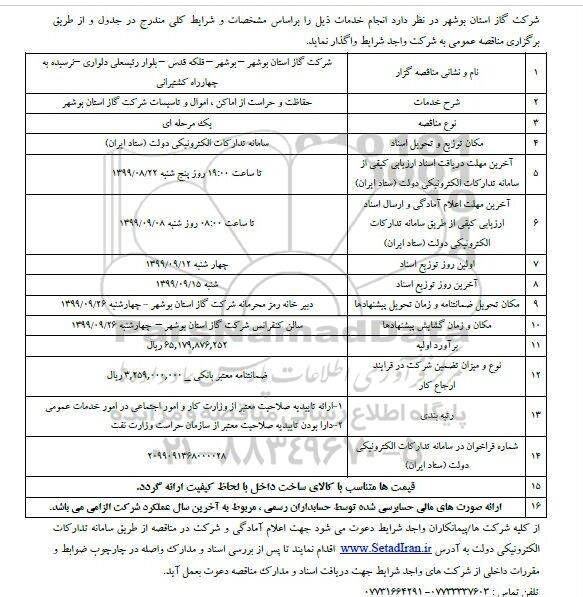 شرکت گاز استان بوشهر در نظر دارد انجام خدمات ذیل را براساس مشخصات و شرایط کلی مندرج در جدول و از طریق
برگزاری مناقصه عمومی به شرکت واجد شرایط واگذار نماید.
۱ نام و نشانی مناقصه گزار شرکت گاز استان بوشهر – بوشهر – فلکه قدس – بلوار رئیسعلی دلواری – نرسیده به
چهارراه کشتیرانی
۲ شرح خدمات حفاظت و حراست از اماکن ، اموال و تاسیسات شرکت گاز استان بوشهر
۳ نوع مناقصه یک مرحله ای
۴ مکان توزیع و تحویل اسناد سامانه تدارکات الکترونیکی دولت (ستاد ایران)
۵ آخرین مهلت دریافت اسناد ارزیابی کیفی از
سامانه تدارکات الکترونیکی دولت (ستاد ایران) تا ساعت ۱۹:۰۰ روز پنج شنبه ۱۳۹۹/۰۸/۲۲
۶ آخرین مهلت اعلام آمادگی و ارسال اسناد
ارزیابی کیفی از طریق سامانه تدارکات
الکترونیکی دولت (ستاد ایران) تا ساعت ۰۸:۰۰ روز شنبه ۱۳۹۹/۰۹/۰۸
۷ اولین روز توزیع اسناد چهار شنبه ۱۳۹۹/۰۹/۱۲
۸ آخرین روز توزیع اسناد شنبه ۱۳۹۹/۰۹/۱۵
۹ مکان تحویل ضمانتنامه و زمان تحویل پیشنهادها دبیر خانه رمز محرمانه شرکت گاز استان بوشهر – چهارشنبه ۱۳۹۹/۰۹/۲۶
۱۰ مکان و زمان گشایش پیشنهادها سالن کنفرانس شرکت گاز استان بوشهر – چهارشنبه ۱۳۹۹/۰۹/۲۶
۱۱ برآورد اولیه ۶۵,۱۷۹,۸۷۶,۲۵۲ ریال
۱۲ نوع و میزان تضمین شرکت در فرایند
ارجاع کار ضمانتنامه معتبر بانکی _ ۳,۲۵۹,۰۰۰,۰۰۰ ریال
۱۳ رتبه بندی ۱-ارائه تاییدیه صلاحیت معتبر از وزارت کار و امور اجتماعی در امور خدمات عمومی
۲-دارا بودن تاییدیه صلاحیت معتبر از سازمان حراست وزارت نفت
۱۴ شماره فراخوان در سامانه تدارکات الکترونیکی
دولت (ستاد ایران) ۲۰۹۹۰۹۱۳۶۸۰۰۰۰۲۸
۱۵ قیمت ها متناسب با کالای ساخت داخل با لحاظ کیفیت ارائه گردد.
۱۶ ارائه صورت های مالی حسابرسی شده توسط حسابداران رسمی ، مربوط به آخرین سال عملکرد شرکت الزامی می باشد.
از کلیه شرکت ها/پیمانکاران واجد شرایط دعوت می شود جهت اعلام آمادگی و شرکت در مناقصه از طریق سامانه تدارکات
الکترونیکی دولت به آدرس www.SetadIran.ir اقدام نمایند تا پس از بررسی اسناد و مدارک واصله در چارچوب ضوابط و
مقررات داخلی از شرکت های واجد شرایط جهت دریافت اسناد و مدارک مناقصه دعوت بعمل آید.
تلفن تماس : ۰۷۷۳۳۳۳۷۶۰۳-۰۷۷۳۱۶۶۴۲۹۱
پایگاه اطلاع رسانی مناقصه و مزایده
۰۲۱-۸۸۳۴۹۶۷۰-۵